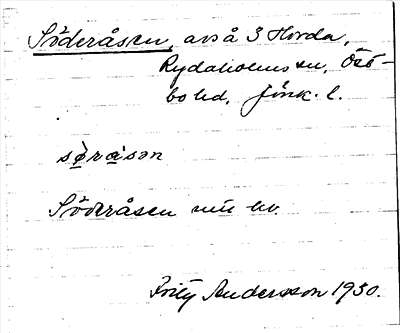 Söderåsen, avs å 3 Horda,
Rydaholms sn, Öst-
bo hd, Jönk. l.
sø̀rɑ̀sən
Söderåsen
Fritz Andersson 1930.